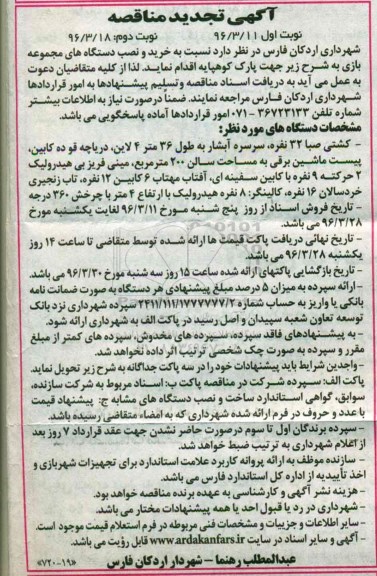 آگهی تجدید مناقصه
نوبت اول ۹۶/۳/۱۱ نوبت دوم: ۹۶/۳/۱۸
شهرداری اردکان فارس در نظر دارد نسبت به خرید و نصب دستگاه های مجموعه
بازی به شرح زیر جهت پارک کوهپایه اقدام نمایـد. لذا از کلیه متقاضیان دعوت
به عمل می آید به دریافت اسناد مناقصه وتسلیم پیشنهادها به امور قراردادها
شهرداری اردکان فارس مراجعه نمایند. ضمناً درصورت نیاز به اطلاعات بیشتر
شماره تلفن ۳۶۷۲۳۱۳۳ - ۰۷۱ امور قراردادها آماده پاسخگویی می باشد.
مشخصات دستگاه های مورد نظر:
- کشتی صبا ۳۲ نفره، سرسره آبشار به طول ۳۶ متر ۴ لاین، دریاچه قو ده کابین،
پیست ماشین برقی به مساحت سالن ۲۰۰ مترمربع، مینی فریز بی هیدرولیک
۲ حرکته ۹ نفره با کابین سفینه ای، آفتاب مهتاب ۶ کابین ۱۲ نفره، تاب زنجیری
خردسالان ۱۶ نفره، کالینگر: ۸ نفره هیدرولیک با ارتفاع ۴ متر با چرخش ۳۶۰ درجه
- تاریخ فروش اسناد از روز پنج شنبه مورخ ۹۶/۳/۱۱ لغایت یکشنبه مورخ
۹۶/۳/۲۸ می باشد.
- تاریخ نهائی دریافت پاکت قیمت ها ارائه شده توسط متقاضی تا ساعت ۱۴ روز
یکشنبه ۹۶/۳/۲۸ می باشد.
- تاریخ بازگشایی پاکتهای ارائه شده ساعت ۱۵ روز سه شنبه مورخ ۹۶/۳/۳۰ می باشد.
- ارائه سپرده به میزان ۵ درصد مبلغ پیشنهادی هر دستگاه به صورت ضمانت نامه
بانکی یا واریز به حساب شماره ۲۴۱۱/۱۱۱/۱۷۷۷۷۷۷/۲ سپرده شهرداری نزد بانک
توسعه تعاون شعبه سپیدان و اصل رسید در پاکت الف به شهرداری ارائه شود.
- به پیشنهادهای فاقد سپرده، سپرده های مخدوش، سپرده های کمتر از مبلغ
مقرر و سپرده به صورت چک شخصی ترتیب اثر داده نخواهد شد.
- واجدین شرایط باید پیشنهادات خود را در سه پاکت جداگانه به شرح زیر تحویل نماید.
پاکت الف: سپرده شرکت در مناقصه پاکت ب: اسناد مربوط به شرکت سازنده،
سوابق، گواهی استاندارد ساخت و نصب دستگاه های مشابه ج: پیشنهاد قیمت
با عدد و حروف در فرم ارائه شده شهرداری که به امضاء متقاضی رسیده باشد.
- سپرده برندگان اول تا سوم درصورت حاضر نشدن جهت عقد قرارداد ۷ روز بعد
از اعلام شهرداری به ترتیب ضبط خواهد شد.
- سازنده موظف به ارائه پروانه کاربرد علامت استاندارد برای تجهیزات شهربازی و
اخذ تأییدیه از اداره کل استاندارد فارس می باشد.
- هزینه نشر آگهی و کارشناسی به عهده برنده مناقصه خواهد بود.
- شهرداری در رد یا قبول احد یا همه پیشنهادات مختار می باشد.
- سایر اطلاعات و جزییات و مشخصات فنی مربوطه در فرم استعلام قیمت موجود است.
- آگهی و سایر اسناد در سایت www.ardakanfars.ir قابل رؤیت می باشد.
عبدالمطلب رهنما - شهردار اردکان فارس «۷۲۰-۱۹»